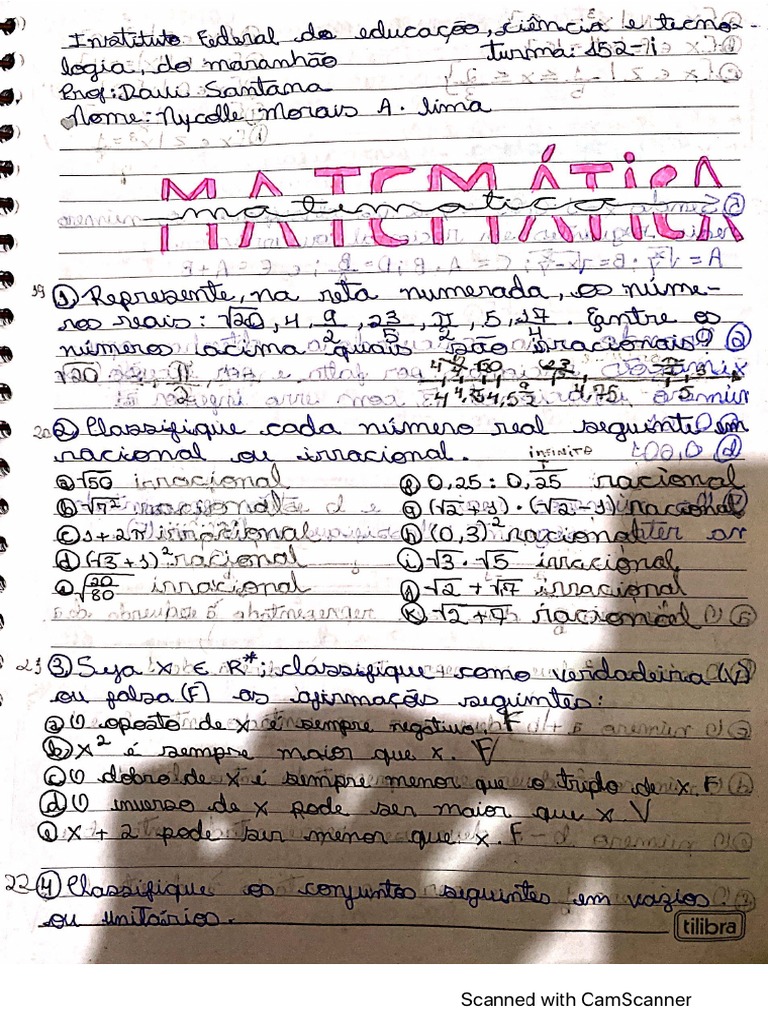 Instituto Federal de educação, ciência e tecno-
logia, do maranhão turma: 152-i
Prof: Davi Santana
Nome: Nycolle Morais A. lima
MATEMÁTICA
matematica
19 ① Represente, na reta numerada, os núme-
ros reais: √20, 4, 9/2, 23/5, π/2, 5, 17/4. Dentre os
números acima quais são irracionais?
√20, π/2
4 4,25 4,5 4,75 5
20 ② Classifique cada número real seguinte em
racional ou irracional.
infinito
ⓐ √50 irracional ⓕ 0,25 : 0,25 racional
ⓑ √7² racional ⓖ (√2 + 1) · (√2 - 1) racional
ⓒ 1 + 2π irracional ⓗ (0,3)² racional
ⓓ (√3 + 1)² racional ⓘ √3 · √5 irracional
ⓔ √20/80 irracional ⓙ √2 + √7 irracional
ⓚ √2 + 7 racional
21 ③ Seja x ∈ R*; classifique como verdadeira (V)
ou falsa (F) as afirmações seguintes:
ⓐ O oposto de x é sempre negativo. F
ⓑ x² é sempre maior que x. F
ⓒ O dobro de x é sempre menor que o triplo de x. F
ⓓ O inverso de x pode ser maior que x. V
ⓔ x + 2 pode ser menor que x. F
22 ④ Classifique os conjuntos seguintes em vazios
ou unitários.
tilibra
Scanned with CamScanner